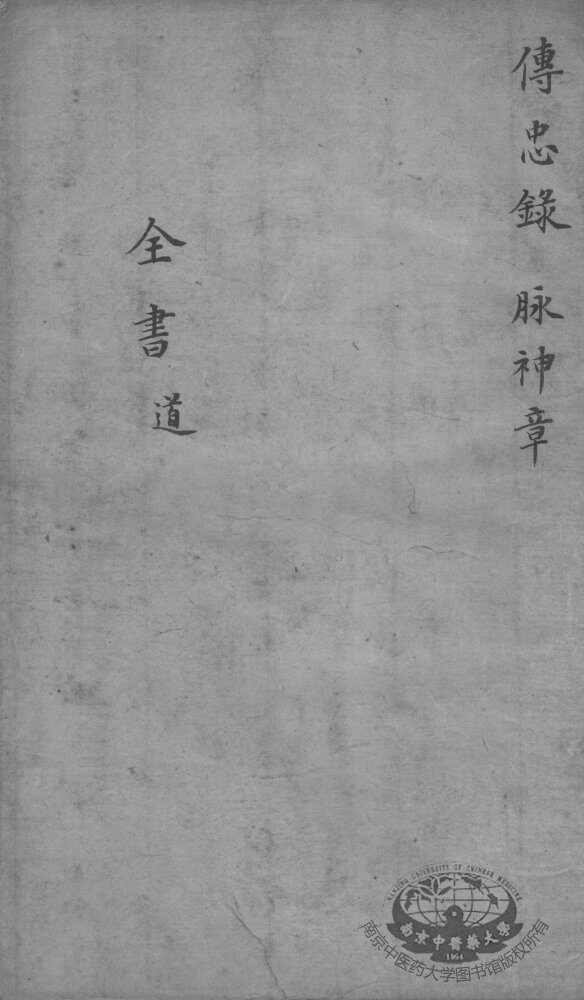 傳忠錄 脉神章
全書 道
NANJING UNIVERSITY OF CHINESE MEDICINE
南京中醫藥大學
1954
南京中医药大学图书馆版权所有